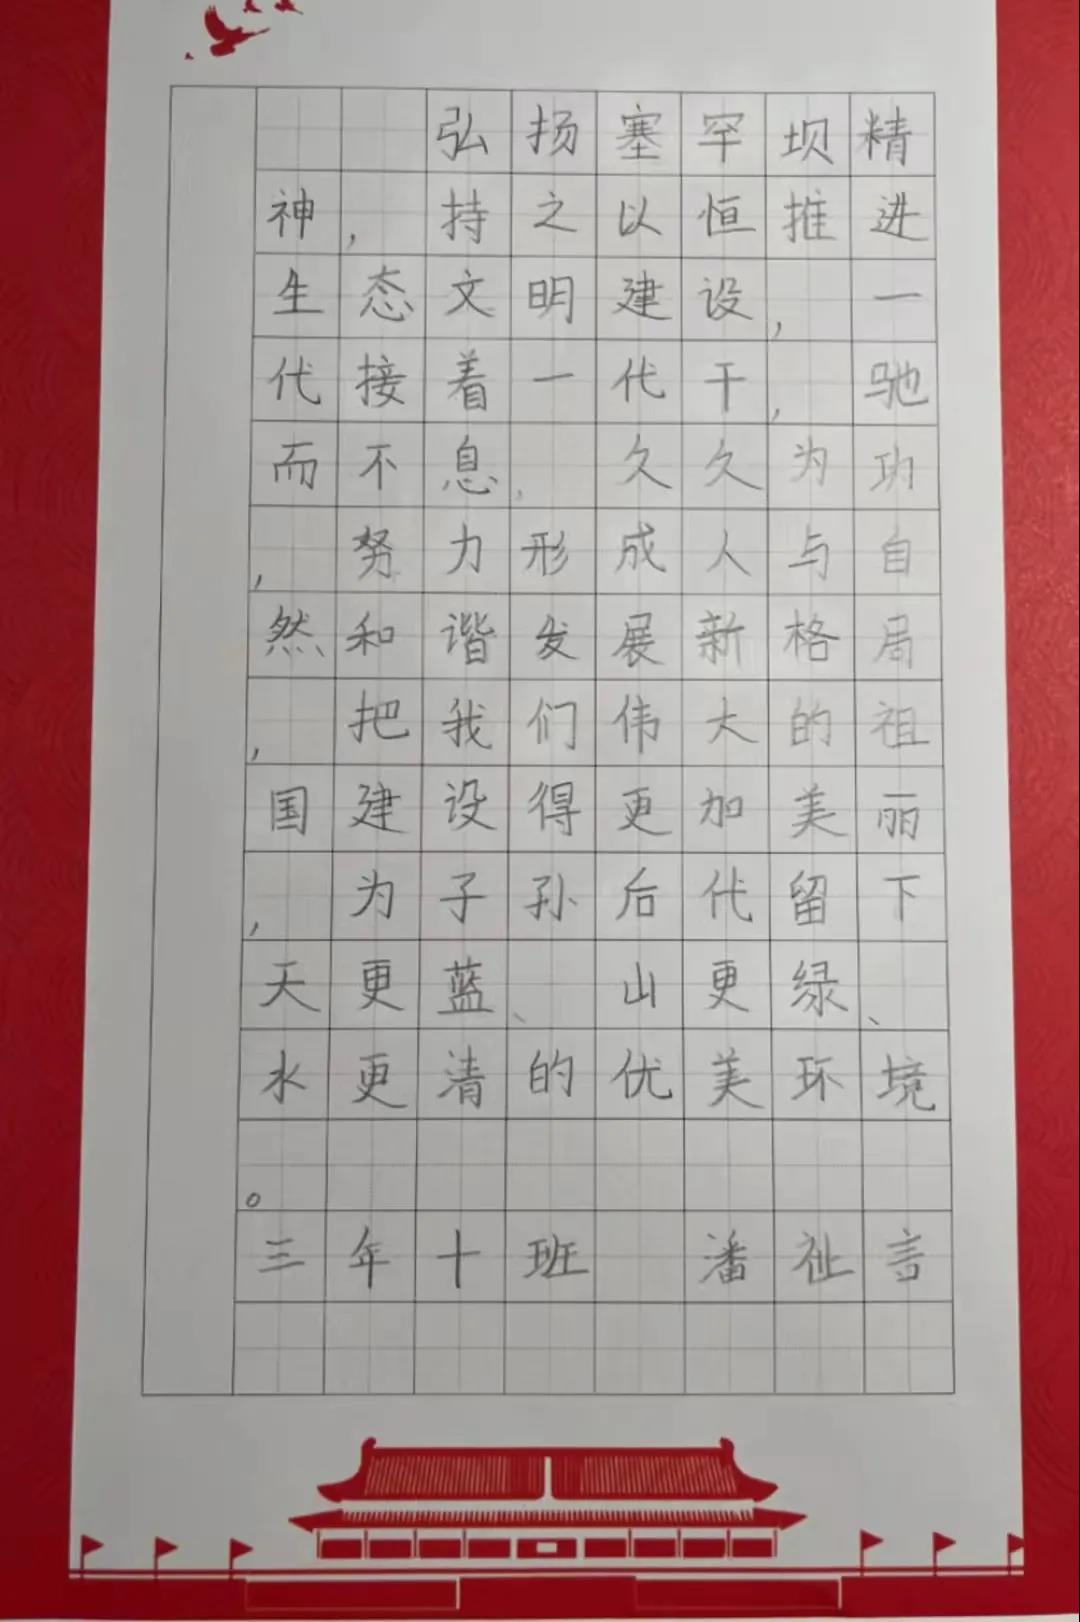 弘扬塞罕坝精
神，持之以恒推进
生态文明建设，一
代接着一代干，驰
而不息，久久为功
，努力形成人与自
然和谐发展新格局
，把我们伟大的祖
国建设得更加美丽
，为子孙后代留下
天更蓝、山更绿、
水更清的优美环境
。
三年十班 潘祉言